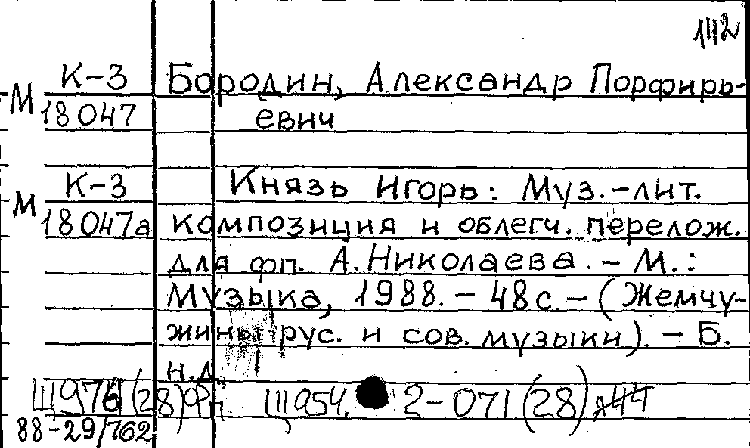 142
М К-3 Бородин, Александр Порфирь-
18047 евич
М К-3 Князь Игорь: Муз.-лит.
18047а композиция и облегч. перелож.
для фп. А.Николаева. - М.:
Музыка, 1988. - 48с. - (Жемчу-
жины рус. и сов. музыки). - Б.
н.д.
Щ954. 2-071(28)
88-29/762